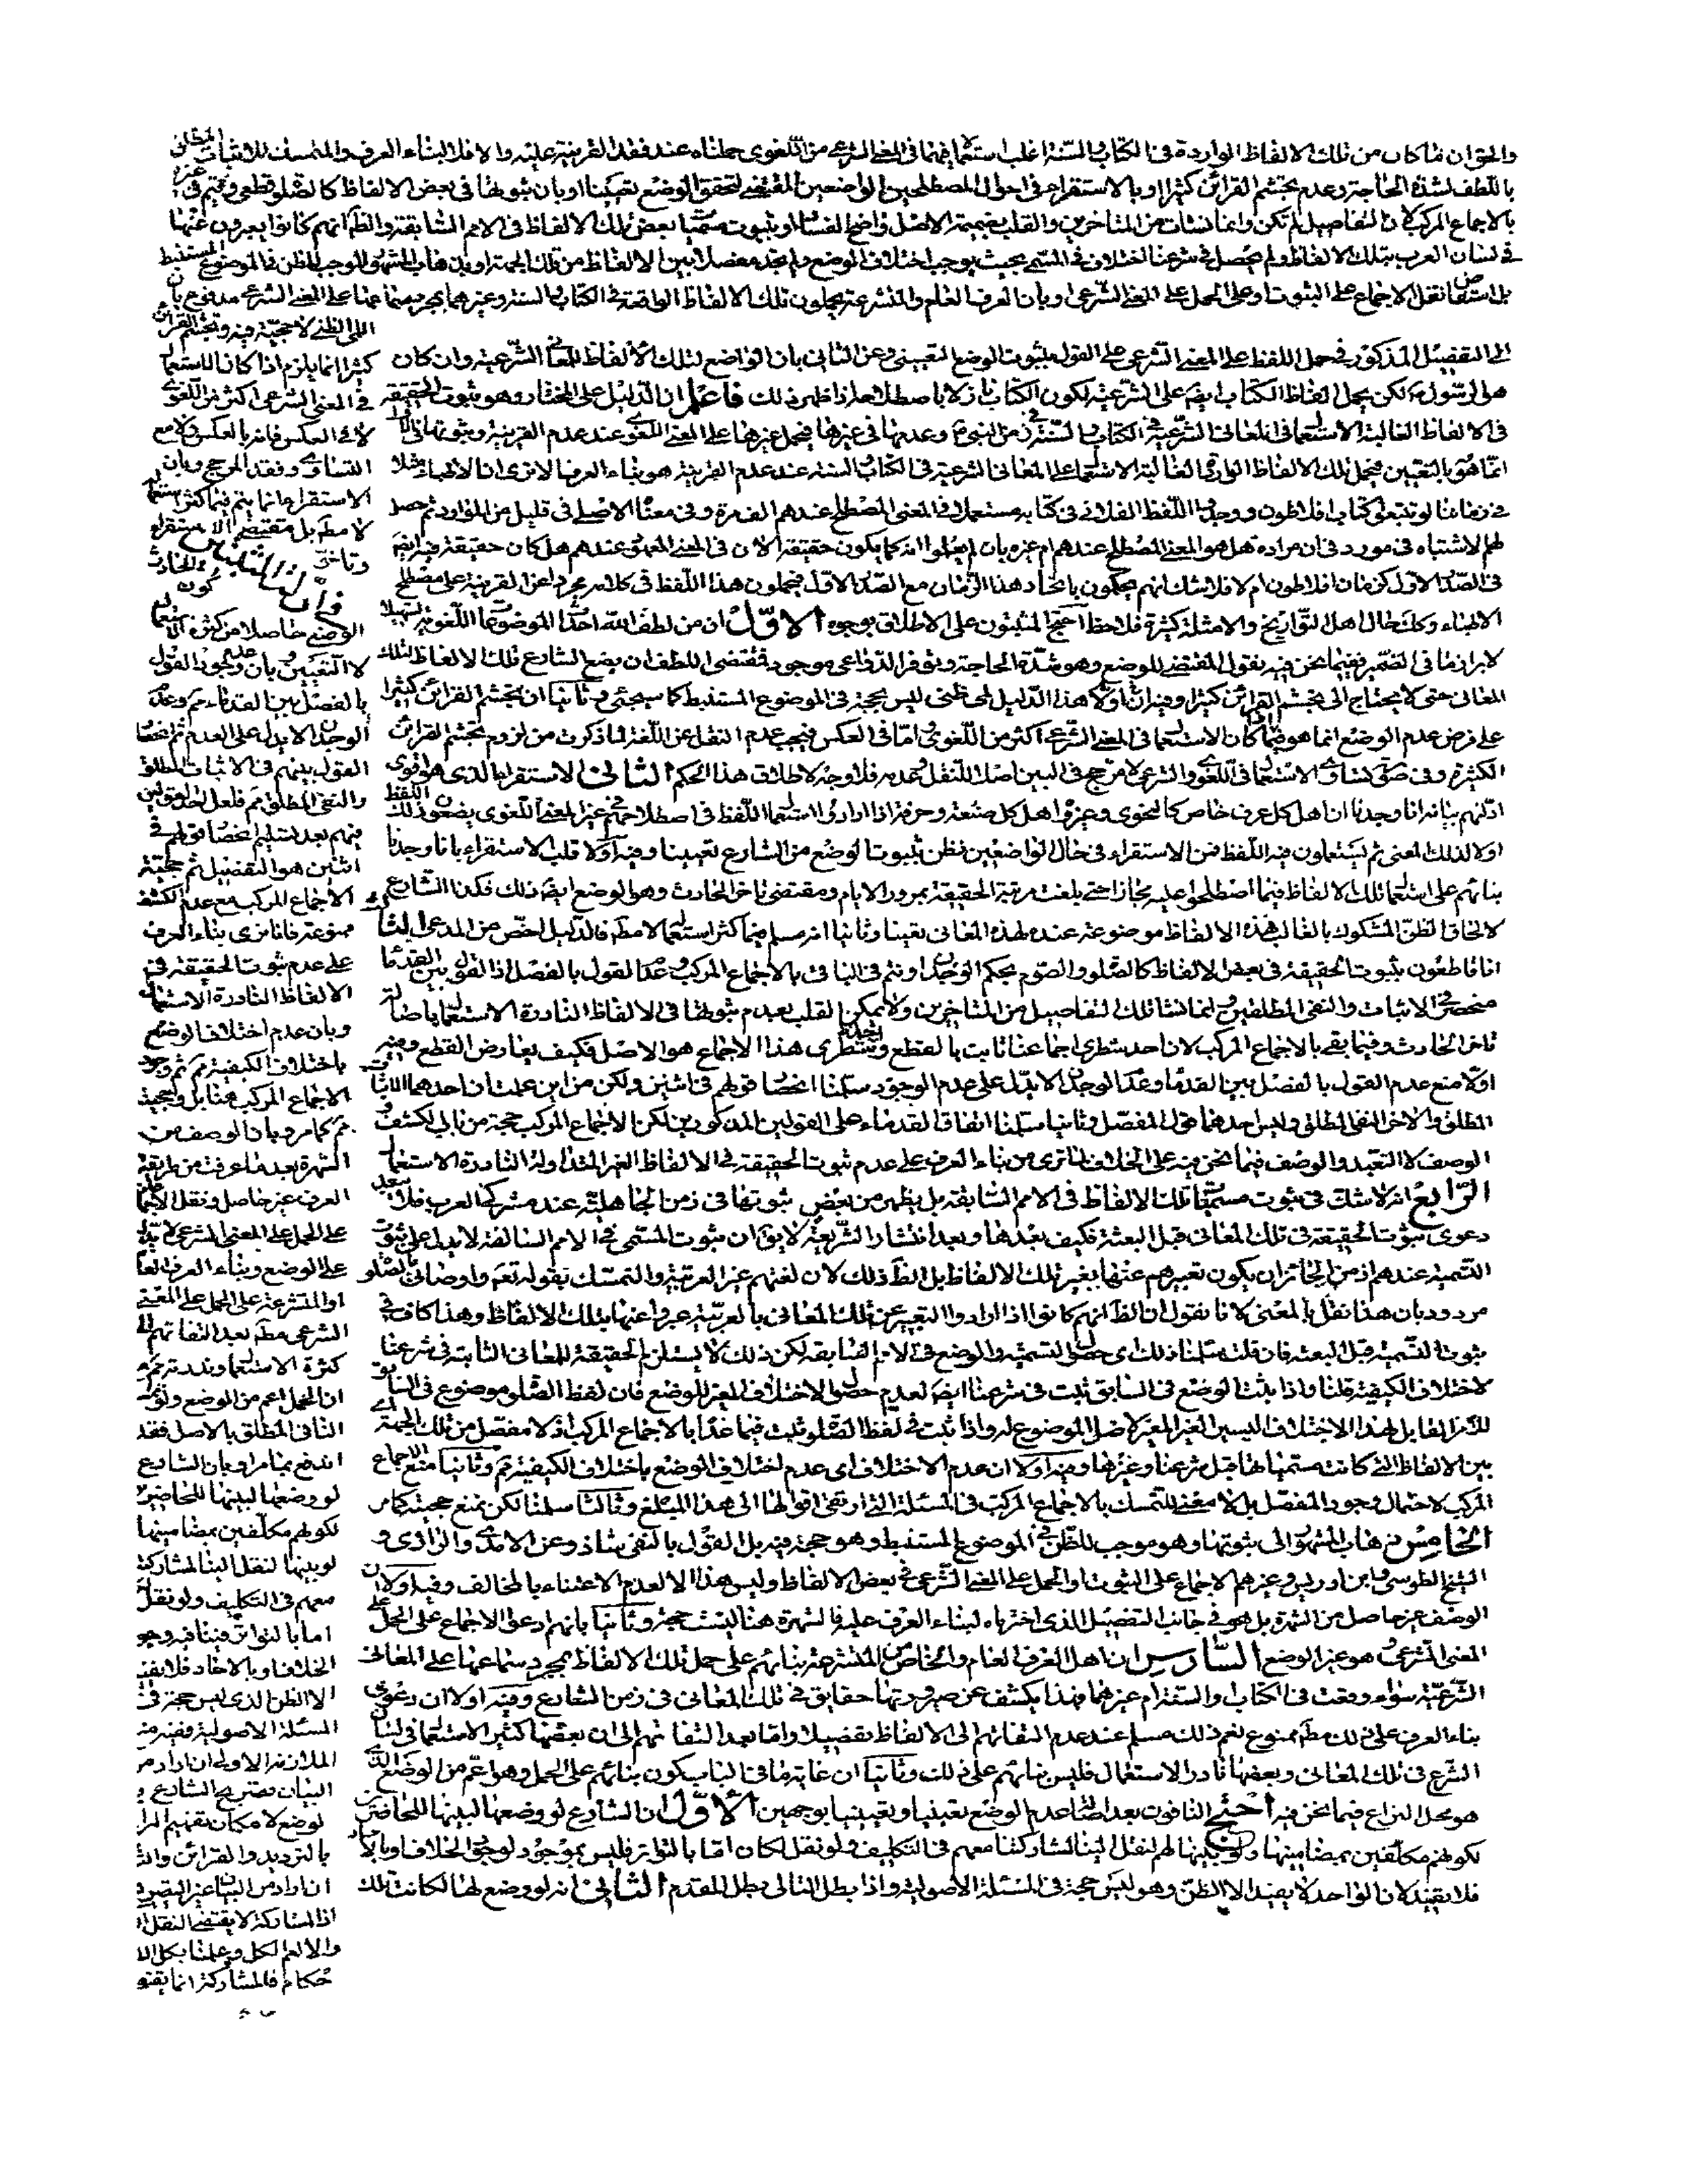 والحق ان ما كان من تلك الالفاظ الواردة فى الكتاب والسنة اغلب استعمالها فى المعنى الشرعى من اللغوى حملناه عند فقد القرينة عليه والا فلا لبناء العرف والمتمسك للاثبات المطلق
باللطف لشدة الحاجة وعدم تجشم القرائن كثيرا او بالاستقراء فى احوال المصطلحين الواضعين المقتضى لتحقق الوضع تعيينا او بان ثبوتها فى بعض الالفاظ كالصلوة قطعى ويتم فى غيره
بالاجماع المركب لان التفاصيل لم تكن وانما نشات من المتاخرين والقلب بضميمة الاصل واضح الفساد او بثبوت مسميات بعض تلك الالفاظ فى الامم السابقة والظ انهم كانوا يعبرون عنها
فى لسان العرب بتلك الالفاظ ولم يحصل فى شرعنا اختلاف فى المسمى بحيث يوجب اختلاف الوضع ولم نجد مفصلا بين الالفاظ من تلك الجهة او بذهاب المشهور الموجب للظن فى الموضوع المستنبط
بل استفاض نقل الاجماع على الثبوت او على الحمل على المعنى الشرعى او بان العرف العام والمتشرعة يحملون تلك الالفاظ الواقعة فى الكتاب والسنة وغيرهما بمجرد سماعها على المعنى الشرعى مدفوع بان
الى التفصيل المذكور فى حمل اللفظ على المعنى الشرعى على القول بثبوت الوضع التعيينى وعن الثانى بان الواضع لتلك الالفاظ للمعانى الشرعية وان كان
هو الرسول ص لكن يحمل الفاظ الكتاب ايضا على الشرعية لكون الكتاب نازلا باصطلاحه اذا ظهر ذلك فاعلم ان الدليل على المختار وهو ثبوت الحقيقة
فى الالفاظ الغالبة الاستعمال فى المعانى الشرعية فى الكتاب والسنة فى زمن النبى ص وعدمها فى غيرها فيحمل غيرها على المعنى اللغوى عند عدم القرينة وثبوتها فى الاول
انما هو بالتعيين فيحمل تلك الالفاظ الواردة الغالبة الاستعمال على المعانى الشرعية فى الكتاب والسنة عند عدم القرينة هو بناء العرف الا ترى ان الاطباء مثلا
فى زماننا لو تتبعوا كتاب افلاطون ووجدوا اللفظ الفلانى فى كتابه مستعملا فى المعنى المصطلح عندهم الف مرة وفى معناه الاصلى فى قليل من الموارد ثم حصل
لهم الاشتباه فى مورد فى ان مراده هل هو المعنى المصطلح عندهم ام غيره بان لم يعلموا انه كما يكون حقيقة الان فى المعنى المعهود عندهم هل كان حقيقة فيه ايضا
فى الصدر الاول كزمان افلاطون ام لا فلا شك انهم يحكمون باتحاد هذا الزمان مع الصدر الاول فيحملون هذا اللفظ فى كلامه مجردا عن القرينة على مصطلح
الاطباء وكذلك حال اهل التواريخ والامثلة كثيرة فلاحظ احتج المثبتون على الاطلاق بوجوه الاول ان من لطف الله احداث الموضوعات اللغوية تسهيلا
لابراز ما فى الضمير وفيما نحن فيه يقول المقتضى للوضع وهو شدة الحاجة وتوفر الدواعى موجود فمقتضى اللطف ان يضع الشارع تلك الالفاظ لتلك
المعانى حتى لا يحتاج الى تجشم القرائن كثيرا وفيه اولا ان هذا الدليل لمى ظنى ليس بحجة فى الموضوع المستنبط كما سيجئى وثانيا ان تجشم القرائن كثيرا
على فرض عدم الوضع انما هو فيما اذا كان الاستعمال فى المعنى الشرعى اكثر من اللغوى اما فى العكس فيجب عدم النقل عن اللغة لما ذكرت من لزوم تجشم القرائن
الكثيرة وفى صورة تساوى الاستعمال فى اللغوى والشرعى لا مرجح فى البين اصلا للنقل وعدمه فلا وجه لاطلاق هذا الحكم الثانى الاستقراء الذى هو اقوى
ادلتهم بيانه انا وجدنا ان اهل كل عرف خاص كالنحوى وغيره واهل كل صنعة وحرفة اذا ارادوا استعمال اللفظ فى اصطلاحهم فى غير المعنى اللغوى يضعون ذلك اللفظ
اولا لذلك المعنى ثم يستعملون فيه اللفظ فمن الاستقراء فى حال الواضعين نظن بثبوت الوضع من الشارع تعيينا وفيه اولا قلب الاستقراء بانا وجدنا
بنائهم على استعمال تلك الالفاظ فيما اصطلحوا عليه مجازا حتى بلغت مرتبة الحقيقة بمرور الايام ومقتضى تاخر الحادث وهو الوضع ايضا ذلك فكذا الشارع
لالحاق الظن المشكوك بالغالب فهذه الالفاظ موضوعة عنده لهذه المعانى تعينا وثانيا انه مسلم فيما كثر استعماله لا مطلقا فالدليل اخص من المدعى الثالث
انا قاطعون بثبوت الحقيقة فى بعض الالفاظ كالصلوة والصوم بحكم الوجدان ونتم فى الباقى بالاجماع المركب وعدم القول بالفصل اذ القول بين القدماء
منحصر فى الاثبات والنفى المطلقين وانما نشا تلك التفاصيل من المتاخرين ولا يمكن القلب بعدم ثبوتها فى الالفاظ النادرة الاستعمال باصالة
تاخر الحادث وفيما بقى بالاجماع المركب لان احد شطرى اجماعنا ثابت بالقطع واحد شطرى هذا الاجماع هو الاصل فكيف يعارض القطع وفيه
اولا منع عدم القول بالفصل بين القدماء وعدم الوجدان لا يدل على عدم الوجود سلمنا انحصار قولهم فى اثنين ولكن من اين علمت ان احدهما الاثبات
المطلق والاخر النفى المطلق وليس احدهما قول المفصل وثانيا سلمنا اتفاق القدماء على القولين المذكورين لكن الاجماع المركب حجة من باب الكشف و
الوصف لا التعبد والوصف فيما نحن فيه على الخلاف لما ترى من بناء العرف على عدم ثبوت الحقيقة فى الالفاظ الغير المتداولة النادرة الاستعمال
الرابع انه لا شك فى ثبوت مسميات تلك الالفاظ فى الامم السابقة بل يظهر من بعض ثبوتها فى زمن الجاهلية عند مشركى العرب فلا يبعد
دعوى ثبوت الحقيقة فى تلك المعانى قبل البعثة فكيف بعدها وبعد انتشار الشريعة لا يق ان ثبوت المسمى فى الامم السالفة لا يدل على ثبوت
التسمية عندهم اذ من الجائز ان يكون تعبيرهم عنها بغير تلك الالفاظ بل الظ ذلك لان لغتهم غير العربية والتمسك بقوله تعم واوصانى بالصلوة
مردود بان هذا نقل بالمعنى لانا نقول ان الظ انهم كانوا اذا ارادوا التعبير عن تلك المعانى بالعربية عبروا عنها بتلك الالفاظ وهذا كاف فى
ثبوت التسمية قبل البعثة فان قلت سلمنا ذلك اى حصول التسمية والوضع فى الامم السابقة لكن ذلك لا يستلزم الحقيقة للمعانى الثابتة فى شرعنا
لاختلاف الكيفية قلنا اذا ثبت الوضع فى السابق ثبت فى شرعنا ايضا لعدم حصول الاختلاف المغير للوضع فان لفظ الصلوة موضوع فى السابق
للامر القابل لهذا الاختلاف اليسير الغير المغير لاصل الموضوع له واذا ثبت فى لفظ الصلوة ثبت فيما عداها بالاجماع المركب اذ لا مفصل من تلك الجهة
بين الالفاظ التى كانت مسمياتها قبل شرعنا وغيرها وفيه اولا ان عدم الاختلاف اى عدم اختلاف الوضع باختلاف الكيفية مم وثانيا منع الاجماع
المركب لاحتمال وجود المفصل بل لا معنى للتمسك بالاجماع المركب فى المسئلة التى ارتقى اقوالها الى هذا المبلغ وثالثا سلمنا لكن نمنع حجيته كما مر
الخامس ذهاب المشهور الى ثبوتها وهو موجب للظن فى الموضوع المستنبط وهو حجة فيه بل القول بالنفى شاذ وعن الامدى والرازى و
الشيخ الطوسى وابن ادريس وغيرهم الاجماع على الثبوت او الحمل على المعنى الشرعى فى بعض الالفاظ وليس هذا الا لعدم الاعتناء بالمخالف وفيه اولا ان
الوصف غير حاصل من الشهرة بل هو فى جانب التفصيل الذى اخترناه لبناء العرف عليه فالشهرة هنا ليست حجة وثانيا بانهم ادعوا الاجماع على الحمل على
المعنى الشرعى وهو غير الوضع السادس ان اهل العرف العام والخاص من المتشرعة بنائهم على حمل تلك الالفاظ بمجرد سماعها على المعانى
الشرعية سواء وقعت فى الكتاب والسنة ام غيرهما فهذا يكشف عن صيرورتها حقايق فى تلك المعانى فى زمن الشارع وفيه اولا ان دعوى
بناء العرف على ذلك مطلقا ممنوع نعم ذلك مسلم عند عدم التفاتهم الى الالفاظ تفصيلا واما بعد التفاتهم الى ان بعضها كثير الاستعمال فى لسان
الشرع فى تلك المعانى وبعضها نادر الاستعمال فليس بنائهم على ذلك وثانيا ان غاية ما فى الباب كون بنائهم على الحمل وهو اعم من الوضع الذى
هو محل النزاع فيما نحن فيه احتج النافون بعد اصالة عدم الوضع تعينيا وتعيينيا بوجهين الاول ان الشارع لو وضعها لبينها للحاضرين
لكونهم مكلفين بمضامينها ولو بينها لهم لنقل الينا لمشاركتنا معهم فى التكليف ولو نقل لكان اما بالتواتر فليس بموجود لوجود الخلاف او بالاحاد
فلا يفيد لان الواحد لا يفيد الا الظن وهو ليس حجة فى المسئلة الاصولية واذا بطل التالى بطل المقدم الثانى انه لو وضع لها لكانت تلك
اللمى الظنى لا حجية فيه وتجشم القرائن
كثيرا انما يلزم اذا كان الاستعمال
فى المعنى الشرعى اكثر من اللغوى
لا فى العكس فانه بالعكس ولا مع
التساوى وفقد المرجح وبان
الاستقراء انما يتم فيما كثر استعماله
لا مطلقا بل مقتضى الاستقراء
وتاخر الحادث
كون
الوضع حاصلا من كثرة الاستعمال
لا التعيين وبان عدم وجود القول
بالفصل بين القدماء مم وعدم
الوجدان لا يدل على العدم ثم انحصار
القول بينهم فى الاثبات المطلق
والنفى المطلق مم فلعل احد القولين
منهم بعد تسليم انحصار قولهم فى
اثنين هو التفصيل ثم حجية
الاجماع المركب مع عدم الكشف
ممنوعة فانا نرى بناء العرف
على عدم ثبوت الحقيقة فى
الالفاظ النادرة الاستعمال
وبان عدم اختلاف الوضع
باختلاف الكيفية مم ثم وجود
الاجماع المركب هنا بل وحجيته
مم كما مر وبان الوصف من
الشهرة بعد ما عرفت من طريقة
العرف غير حاصل ونقل الاجماع
على الحمل على المعنى الشرعى لا يدل
على الوضع وبناء العرف العام
او المتشرعة على الحمل على المعنى
الشرعى مطلقا بعد التفاتهم الى
كثرة الاستعمال وندرته مم
ان الحمل اعم من الوضع وتمسك
النافى المطلق بالاصل فقد
اندفع بما مر او بان الشارع
لو وضعها لبينها للحاضرين
لكونهم مكلفين بمضامينها
لو بينها لنقل الينا لمشاركتنا
معهم فى التكليف ولو نقل
اما بالتواتر فينافيه وجود
الخلاف او بالاحاد فلا يفيد
الا الظن الذى ليس حجة فى
المسئلة الاصولية وفيه منع
الملازمة الاولى ان اراد من
البيان تصريح الشارع با
لوضع لامكان تفهيم المراد
بالترديد والقرائن والثانية
ان اراد من البيان غير التصريح
اذ المشاركة لا يقتضى النقل
والا لعم الكل وعلمنا بكل الا
حكام فالمشاركة انما يقتضى